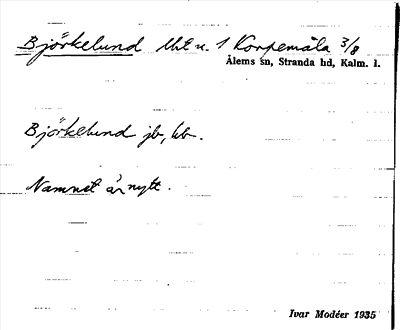 Björkelund lht u. 1 Korpemåla 3/8
Ålems sn, Stranda hd, Kalm. l.
Björkelund jb, kb.
Namnet är nytt.
Ivar Modéer 1935